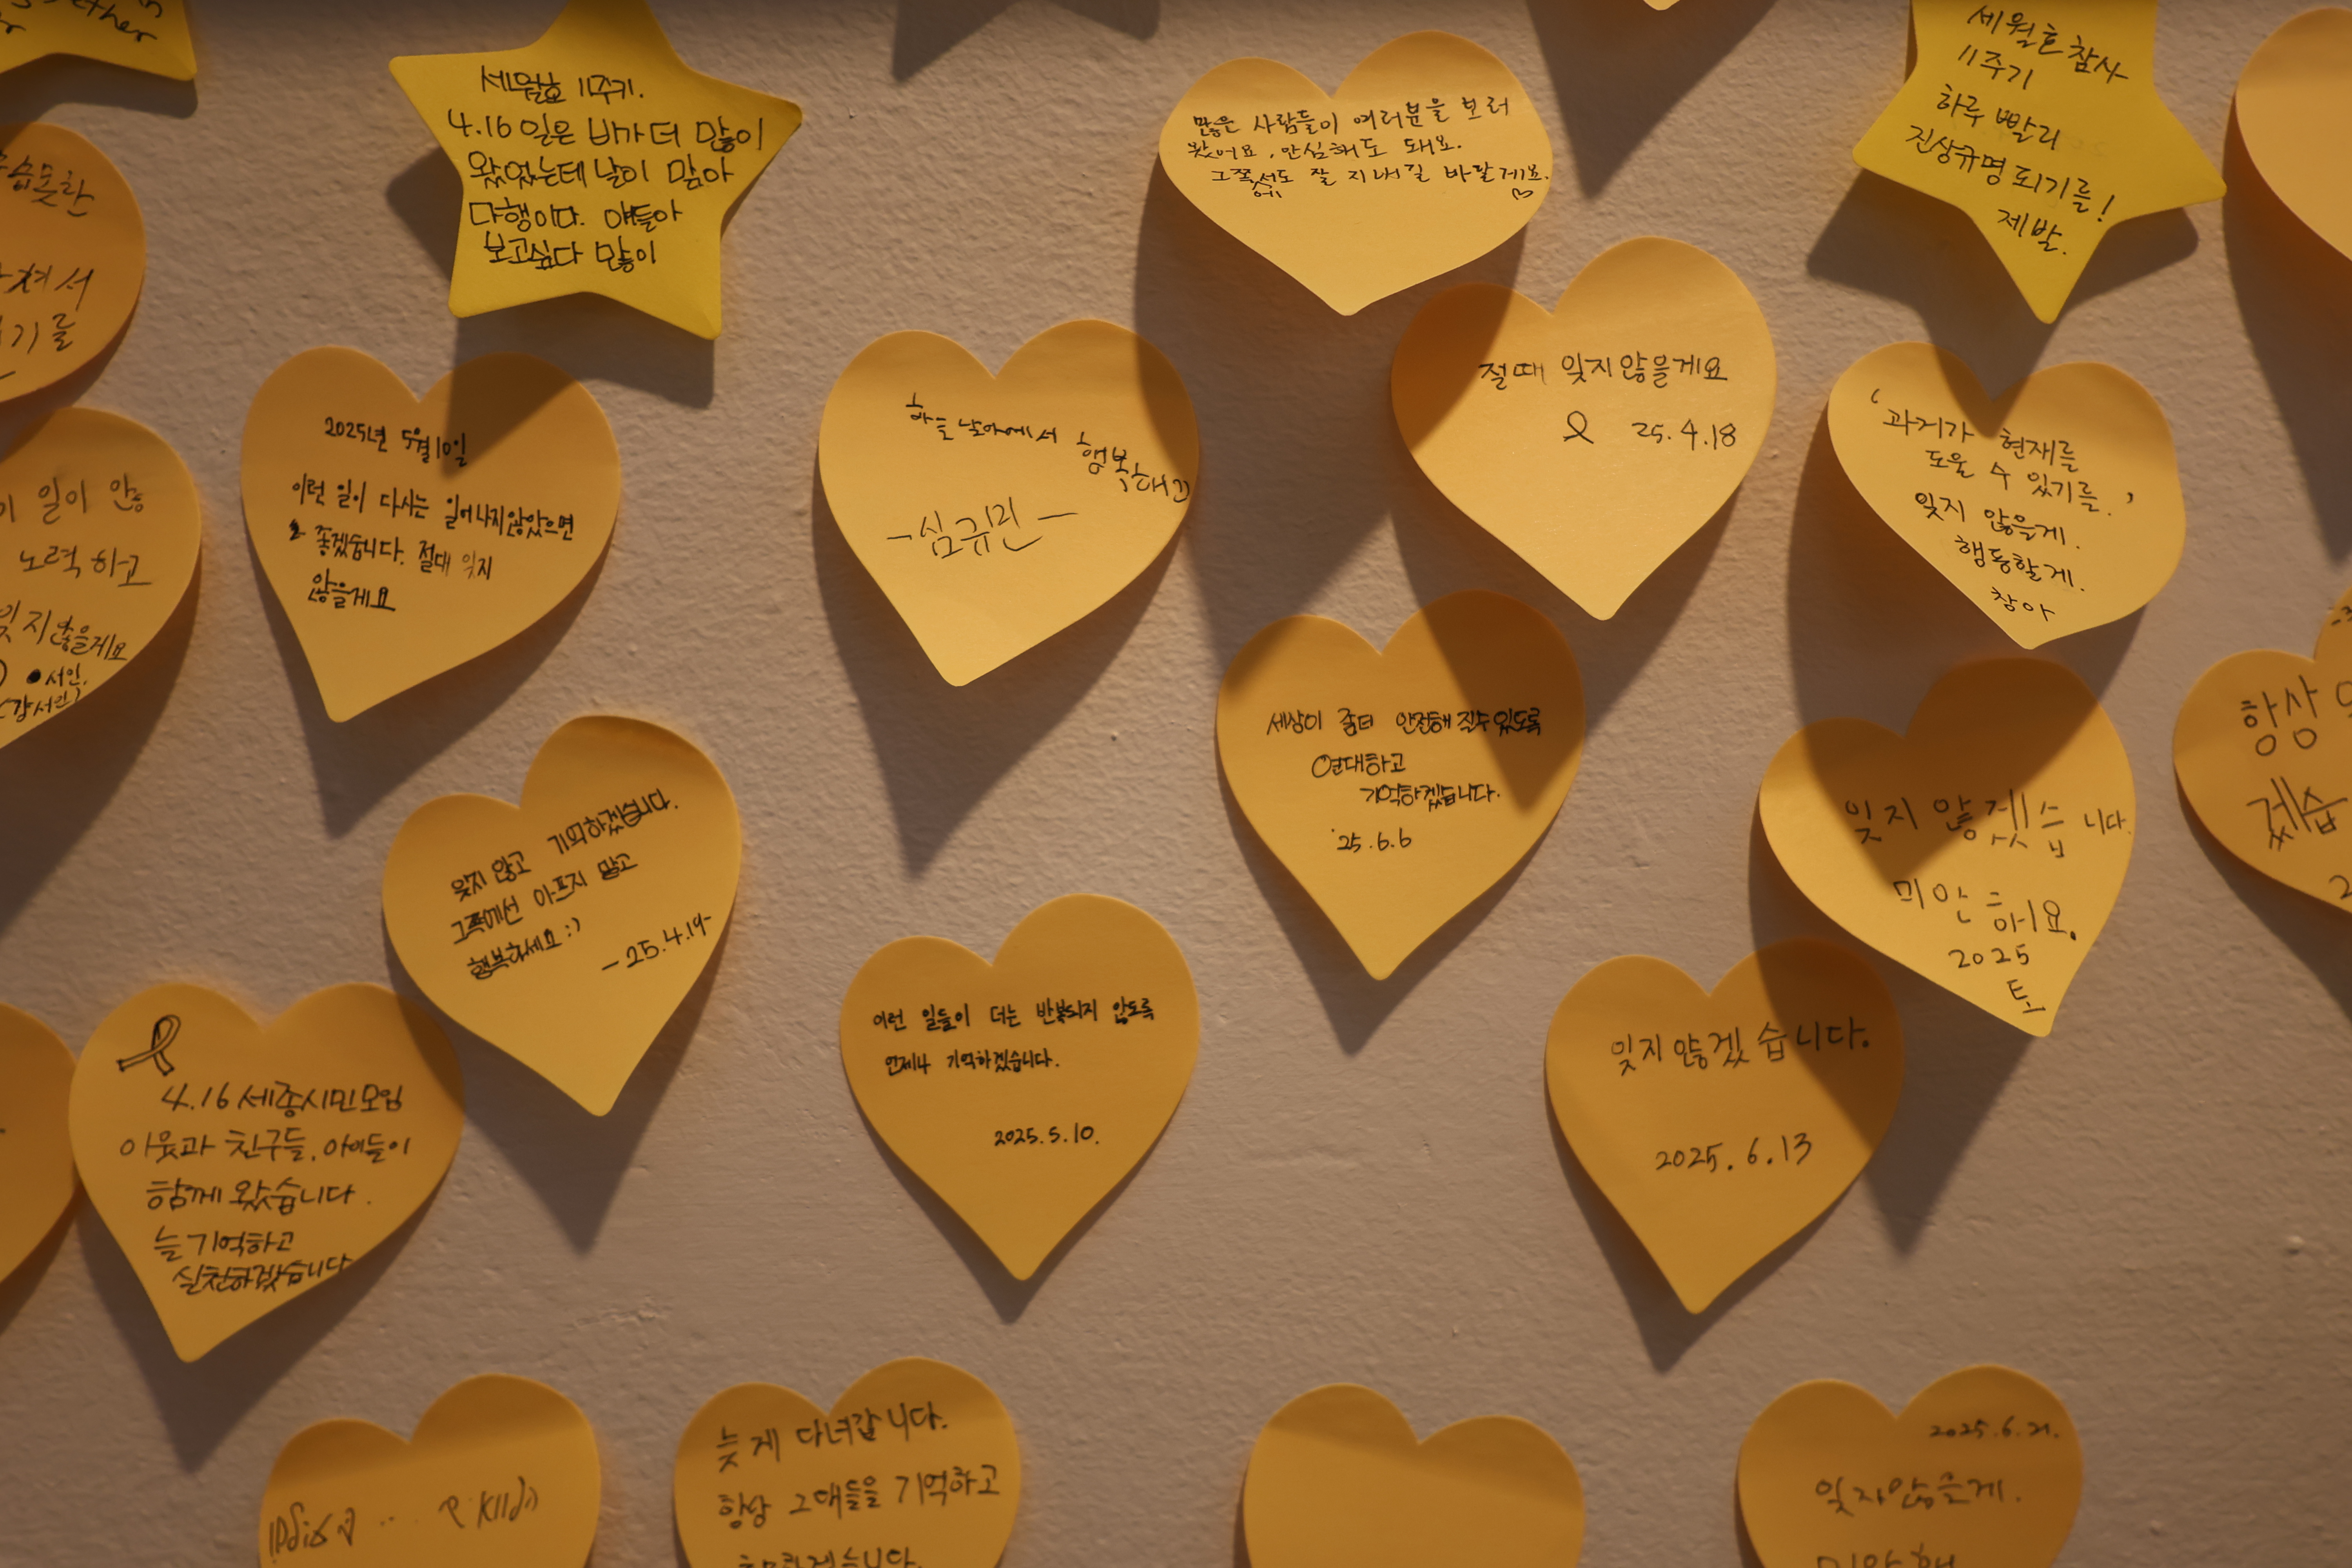 세월호 11주기.
4.16일은 비가 더 많이
왔었는데 날이 맑아
다행이다. 얘들아
보고싶다 많이
많은 사람들이 여러분을 보러
왔어요, 안심해도 돼요.
그쪽에서도 잘 지내길 바랄게요.
세월호 참사
11주기
하루 빨리
진상규명 되기를!
제발.
2025년 5월 10일
이런 일이 다시는 일어나지않았으면
좋겠습니다. 절대 잊지
않을게요
하늘 날아에서 행복해
-심규민-
절때 잊지않을게요
25.4.18
'과거가 현재를
도울 수 있기를.'
잊지 않을게.
행동할게.
창아
일이 안
노력하고
잊지않을게요
서인.
세상이 좀더 안전해질수있도록
연대하고
기억하겠습니다.
'25.6.6
잊지 않겠습니다.
미안해요.
2025
항상
겠습
잊지 않고 기억하겠습니다.
그쪽에선 아프지 말고
행복하세요 :)
-25.4.19-
이런 일들이 더는 반복되지 않도록
언제나 기억하겠습니다.
2025.5.10.
잊지않겠습니다.
2025.6.13
4.16 세종시민모임
이웃과 친구들, 아이들이
함께 왔습니다.
늘 기억하고
실천하겠습니다
늦게 다녀갑니다.
항상 그대들을 기억하고
2025.6.21.
잊지않을게.
미안해